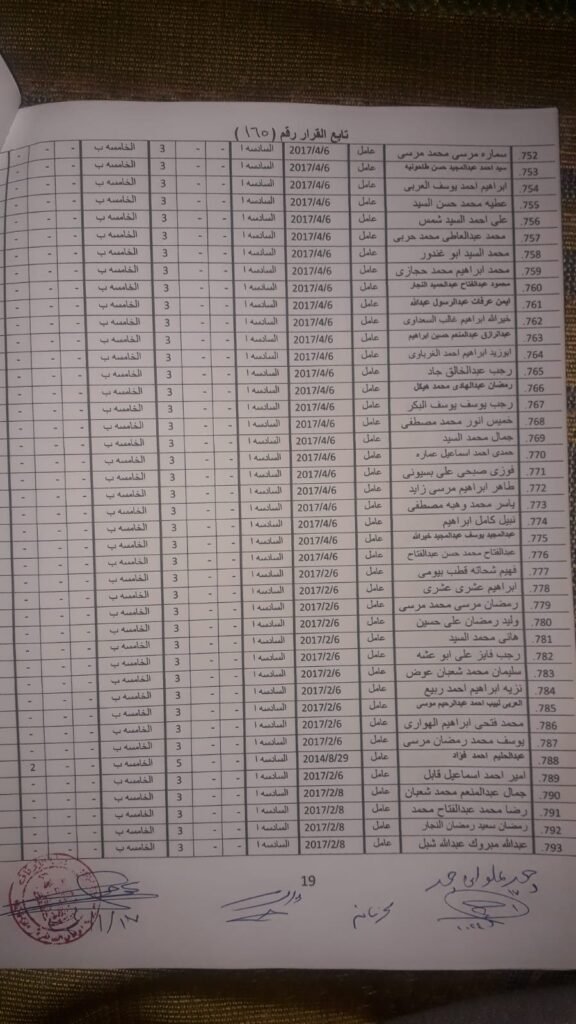 تابع القرار رقم (١٦٥)
752. سماره مرسى محمد مرسى عامل 2017/4/6 السادسه ا - - 3 الخامسه ب - - -
753. سيد احمد عبدالمجيد حسن طاحونيه عامل 2017/4/6 السادسه ا - - 3 الخامسه ب - - -
754. ابراهيم احمد يوسف العربى عامل 2017/4/6 السادسه ا - - 3 الخامسه ب - - -
755. عطيه محمد حسن السيد عامل 2017/4/6 السادسه ا - - 3 الخامسه ب - - -
756. على احمد السيد شمس عامل 2017/4/6 السادسه ا - - 3 الخامسه ب - - -
757. محمد عبدالعاطى محمد حربى عامل 2017/4/6 السادسه ا - - 3 الخامسه ب - - -
758. محمد السيد ابو غندور عامل 2017/4/6 السادسه ا - - 3 الخامسه ب - - -
759. محمد ابراهيم محمد حجازى عامل 2017/4/6 السادسه ا - - 3 الخامسه ب - - -
760. محمود عبدالفتاح عبدالحميد النجار عامل 2017/4/6 السادسه ا - - 3 الخامسه ب - - -
761. ايمن عرفات عبدالرسول عبدالله عامل 2017/4/6 السادسه ا - - 3 الخامسه ب - - -
762. خيرالله ابراهيم غالب السعداوى عامل 2017/4/6 السادسه ا - - 3 الخامسه ب - - -
763. عبدالرازق عبدالمنعم حسين ابراهيم عامل 2017/4/6 السادسه ا - - 3 الخامسه ب - - -
764. ابوزيد ابراهيم احمد الغرباوى عامل 2017/4/6 السادسه ا - - 3 الخامسه ب - - -
765. رجب عبدالخالق جاد عامل 2017/4/6 السادسه ا - - 3 الخامسه ب - - -
766. رمضان عبدالهادى محمد هيكل عامل 2017/4/6 السادسه ا - - 3 الخامسه ب - - -
767. رجب يوسف يوسف البكر عامل 2017/4/6 السادسه ا - - 3 الخامسه ب - - -
768. خميس انور محمد مصطفى عامل 2017/4/6 السادسه ا - - 3 الخامسه ب - - -
769. جمال محمد السيد عامل 2017/4/6 السادسه ا - - 3 الخامسه ب - - -
770. حمدى احمد اسماعيل عماره عامل 2017/4/6 السادسه ا - - 3 الخامسه ب - - -
771. فوزى صبحى على بسيونى عامل 2017/4/6 السادسه ا - - 3 الخامسه ب - - -
772. طاهر ابراهيم مرسى زايد عامل 2017/4/6 السادسه ا - - 3 الخامسه ب - - -
773. ياسر محمد وهبه مصطفى عامل 2017/4/6 السادسه ا - - 3 الخامسه ب - - -
774. نبيل كامل ابراهيم عامل 2017/4/6 السادسه ا - - 3 الخامسه ب - - -
775. عبدالمجيد يوسف عبدالمجيد خيرالله عامل 2017/4/6 السادسه ا - - 3 الخامسه ب - - -
776. عبدالفتاح محمد حسن عبدالفتاح عامل 2017/4/6 السادسه ا - - 3 الخامسه ب - - -
777. فهيم شحاته قطب بيومى عامل 2017/2/6 السادسه ا - - 3 الخامسه ب - - -
778. ابراهيم عشرى عشرى عامل 2017/2/6 السادسه ا - - 3 الخامسه ب - - -
779. رمضان مرسى محمد مرسى عامل 2017/2/6 السادسه ا - - 3 الخامسه ب - - -
780. وليد رمضان على حسين عامل 2017/2/6 السادسه ا - - 3 الخامسه ب - - -
781. هانى محمد السيد عامل 2017/2/6 السادسه ا - - 3 الخامسه ب - - -
782. رجب فايز على ابو عشه عامل 2017/2/6 السادسه ا - - 3 الخامسه ب - - -
783. سليمان محمد شعبان عوض عامل 2017/2/6 السادسه ا - - 3 الخامسه ب - - -
784. نزيه ابراهيم احمد ربيع عامل 2017/2/6 السادسه ا - - 3 الخامسه ب - - -
785. العربى لبيب احمد عبدالرحيم موسى عامل 2017/2/6 السادسه ا - - 3 الخامسه ب - - -
786. محمد فتحى ابراهيم الهوارى عامل 2017/2/6 السادسه ا - - 3 الخامسه ب - - -
787. يوسف محمد رمضان مرسى عامل 2017/2/6 السادسه ا - - 3 الخامسه ب - - -
788. عبدالحليم احمد فؤاد عامل 2014/8/29 السادسه ا - - 5 الخامسه ب - 2 -
789. امير احمد اسماعيل قابل عامل 2017/2/6 السادسه ا - - 3 الخامسه ب - - -
790. جمال عبدالمنعم محمد شعبان عامل 2017/2/8 السادسه ا - - 3 الخامسه ب - - -
791. رضا محمد عبدالفتاح محمد عامل 2017/2/8 السادسه ا - - 3 الخامسه ب - - -
792. رمضان سعيد رمضان النجار عامل 2017/2/8 السادسه ا - - 3 الخامسه ب - - -
793. عبدالله مبروك عبدالله شبل عامل 2017/2/8 السادسه ا - - 3 الخامسه ب - - -
19